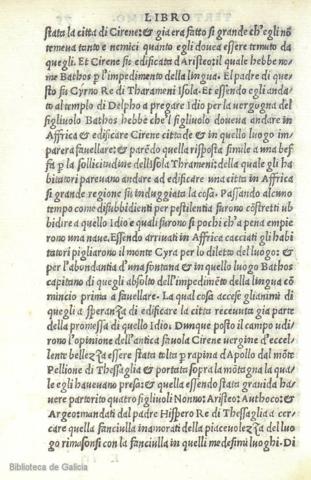 LIBRO
stata la citta di Cirene: & gia era fatto si grande ch'egli nō
temeua tanto e nemici quanto egli douea essere temuto da
quegli. Et Cirene fu edificata d'Aristeo: il quale hebbe no-
me Bathos p l'impedimento della lingua. El padre di que-
sto fu Cyrno Re di Tharameni Isola. Et essendo egli anda
to al templo di Delpho a pregare Idio per la vergugna del
figliuolo Bathos hebbe che'l figliuolo doueua andare in
Affrica & edificare Cirene cittade & in quello luogo im-
parera fauellare: & parēdo quella risposta simile a una bef-
fa p la sollicitudine dell'Isola Thrameni: della quale gli ha
bitatori pareuano andare ad edificare una citta in Affrica
si grande regione su induggiata la cosa. Passando alcuno
tempo come disubbidienti per pestilentia furono cōstretti ub
bidire a quello Idio e quali furono si pochi ch'a pena empie
rono una naue. Essendo arriuati in Affrica cacciati gli habi
tatori pigliarono il monte Cyra per lo diletto del luogo: &
per l'abondantia d'una fontana & in quello luogo Bathos
capitano di quegli absolto dell'impedimēto della lingua co
mincio prima a fauellare. La qual cosa accese gli animi di
quegli a sperāza di edificare la citta receuuta gia parte
della promessa di quello Idio. Dunque posto il campo udi
rono l'opinione dell'antica fauola Cirene uergine d'eccel-
lente bellezza essere stata tolta p rapina d'Apollo dal mōte
Pellione di Thessaglia & portata sopra la mōtagna la qua
le egli haueuano preso: & quella essendo stata grauida haue
re parturito quatro figliuoli Nonno: Aristeo: Authoco: &
Argeo: mandati dal padre Hispero Re di Thessaglia a cer-
care quella fanciulla inamorati della piaceuolezza del luo
go rimasonsi con la fanciulla in quelli medesimi luoghi. Di
Biblioteca de Galicia